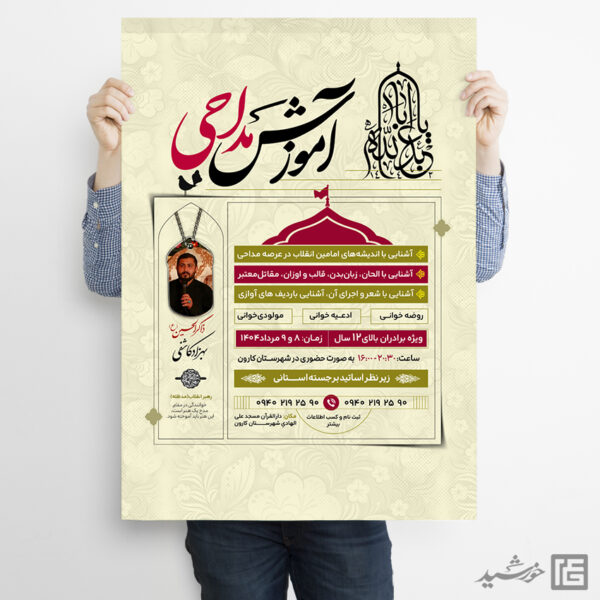 یا اباعبدالله
آموزش مداحی
آشنایی با اندیشه‌های امامین انقلاب در عرصه مداحی
آشنایی با الحان، زبان‌بدن، قالب و اوزان، مقاتل‌معتبر
آشنایی با شعر و اجرای آن، آشنایی باردیف های آوازی
روضه خوانی
ادعیه خوانی
مولودی‌خوانی
ویژه برادران بالای ۱۲ سال
زمان: ۸ و ۹ مرداد ۱۴۰۴
ساعت: ۲۰:۳۰-۱۶:۰۰ به صورت حضوری در شهرستان کارون
زیر نظر اساتید برجسته استانی
۰۹۴۰ ۲۱۹ ۲۵ ۹۰
۰۹۴۰ ۲۱۹ ۲۵ ۹۰
ثبت نام و کسب اطلاعات
بیشتر
مکان: دارالقرآن مسجد علی
الهادی شهرستان کارون
ذاکرالحسین(ع)
بهزاد کاشفی
رهبر انقلاب(مدظله)
خوانندگی در مقام
مدح یک هنر است،
این هنر باید آموخته شود
خورشید